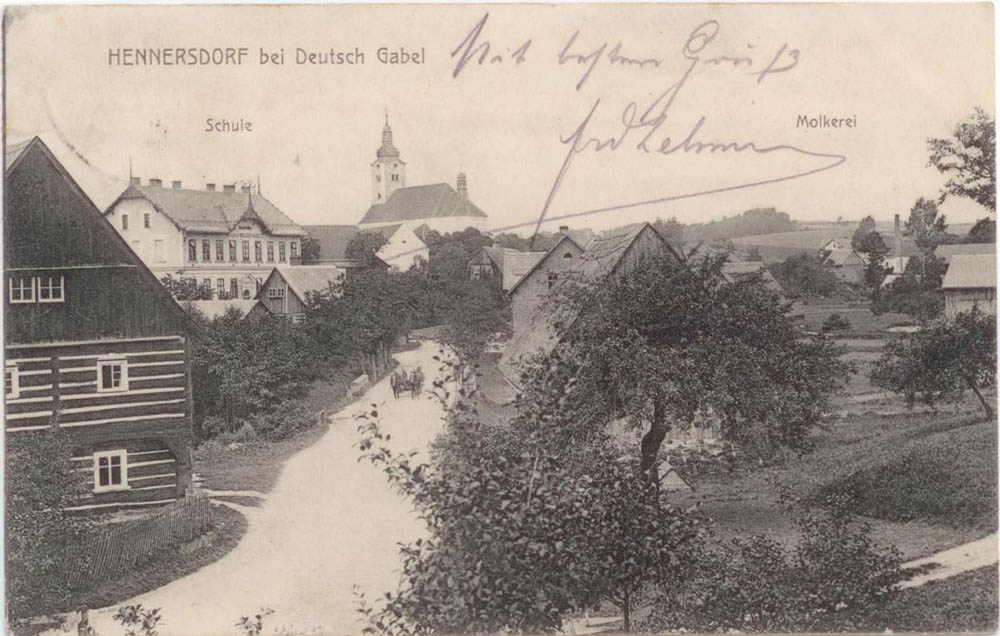 HENNERSDORF bei Deutsch Gabel
Mit besten Gruß
Schule
Molkerei